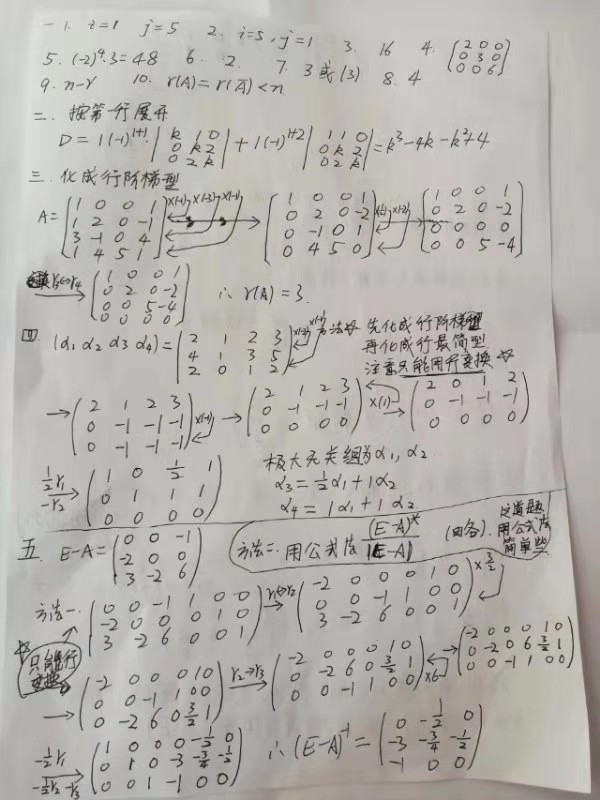 一 1. i=1 j=5 2. i=5, j=1 3. 16 4. (2 0 0
0 3 0
0 0 6)
5. (-2)^4·3=48 6. -2. 7. 3或(3) 8. 4
9. n-r 10. r(A)=r(Ā)<n
二. 按第一行展开
D=1(-1)^{1+1} |k 1 0
0 k 2
0 2 k| +1(-1)^{1+2} |1 1 0
0 k 2
0 2 k| =k³-4k-k²+4
三. 化成行阶梯型
A= (1 0 0 1
1 2 0 -1
3 -1 0 4
1 4 5 1) ×(-1) ×(-3) ×(-1) → (1 0 0 1
0 2 0 -2
0 -1 0 1
0 4 5 0) ×(-2) → (1 0 0 1
0 2 0 -2
0 0 0 0
0 0 5 -4)
r₃↔r₄ → (1 0 0 1
0 2 0 -2
0 0 5 -4
0 0 0 0) ∴ r(A)=3.
四. (α₁ α₂ α₃ α₄)= (2 1 2 3
4 1 3 5
2 0 1 2) ×(-2) ×(-1)
方法☆ 先化成行阶梯型
再化成行最简型
注意只能用行变换☆
→ (2 1 2 3
0 -1 -1 -1
0 -1 -1 -1) ×(-1) → (2 1 2 3
0 -1 -1 -1
0 0 0 0) ×(1) → (2 0 1 2
0 -1 -1 -1
0 0 0 0)
½r₁
-r₂ → (1 0 ½ 1
0 1 1 1
0 0 0 0)
极大无关组为α₁, α₂
α₃=½α₁+1α₂
α₄=1α₁+1α₂
五. E-A= (0 0 -1
-2 0 0
3 -2 6)
方法二. 用公式法 (E-A)*/|E-A| (四各).
这道题
用公式法
简单些
方法一. (0 0 -1 1 0 0
-2 0 0 0 1 0
3 -2 6 0 0 1) r₁↔r₂ → (-2 0 0 0 1 0
0 0 -1 1 0 0
3 -2 6 0 0 1) ×3/2
☆
只能行
变换
→ (-2 0 0 0 1 0
0 0 -1 1 0 0
0 -2 6 0 3/2 1) r₂↔r₃ → (-2 0 0 0 1 0
0 -2 6 0 3/2 1
0 0 -1 1 0 0) ×6 → (-2 0 0 0 1 0
0 -2 0 6 3/2 1
0 0 -1 1 0 0)
-½r₁
-½r₂ -r₃ → (1 0 0 0 -½ 0
0 1 0 -3 -¾ -½
0 0 1 -1 0 0) ∴ (E-A)^{-1}= (0 -½ 0
-3 -¾ -½
-1 0 0)